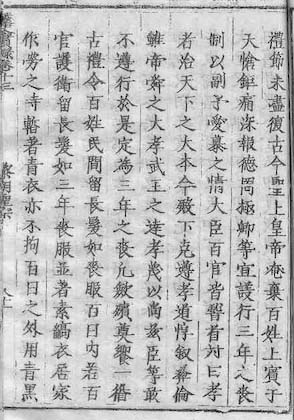 禮節未盡復古今聖上皇帝奄棄百姓上賓于
天慘鉅痛深報德罔極卿等宜議行三年之喪
制以副予愛慕之情大臣百官皆稽首对曰孝
者治天下之大本今殿下克遵孝道惇叙彝倫
雖帝舜之大孝武王之達孝幾以尚兹臣等敢
不遵行於是定為三年之喪凡斂殯奠饗一循
古禮令百姓民間留長髮如喪服百日内若百
官護衛留長髮如三年喪服並著素縞衣居家
作勞之寺輅著青衣亦不拘百日之外用青黑
實録卷十三